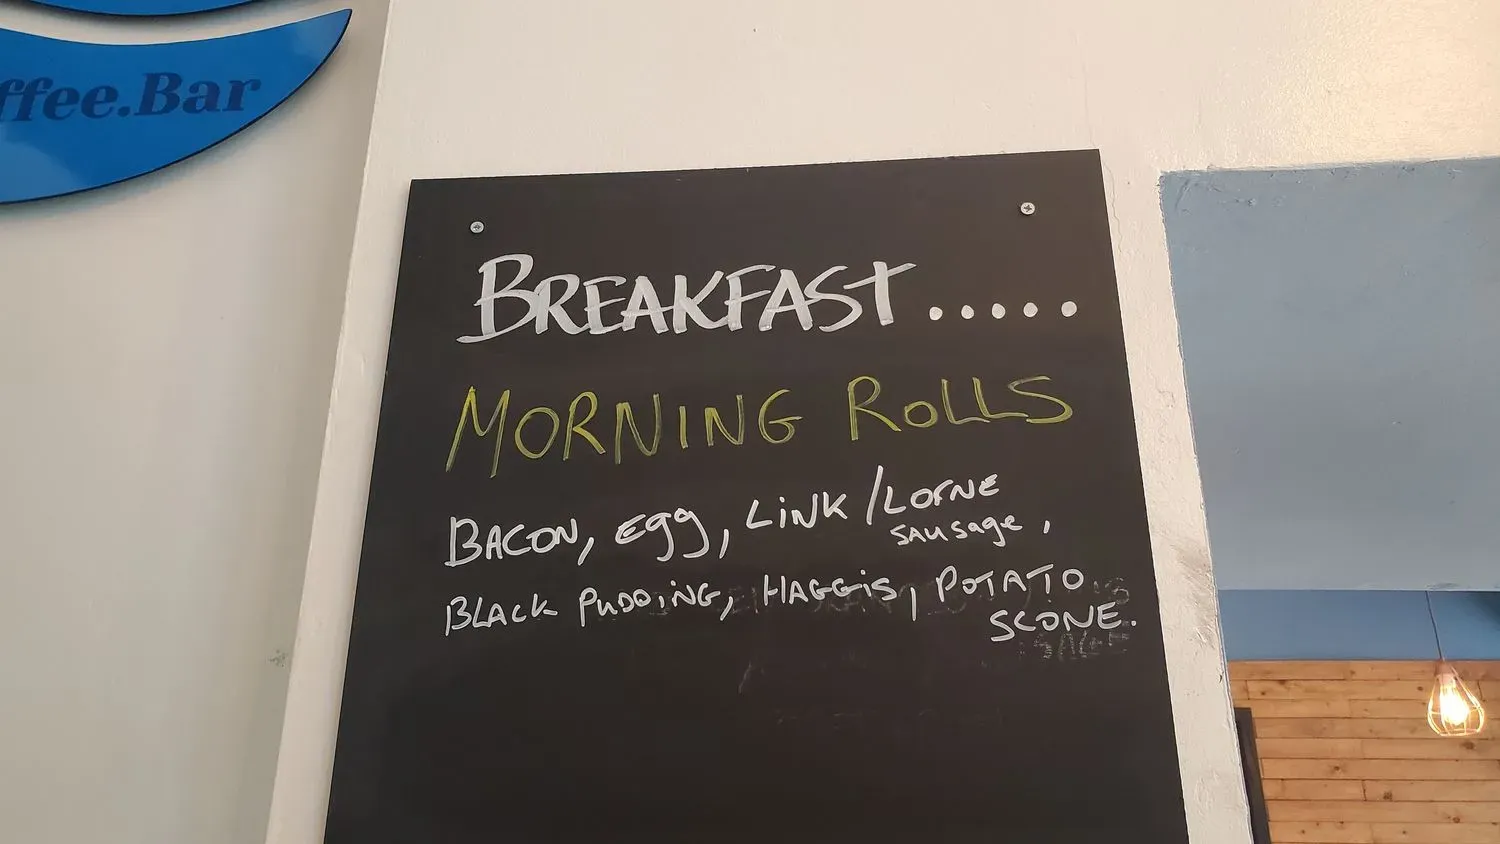 ffee.Bar
BREAKFAST.....
MORNING ROLLS
BACON, EGG, LINK/LORNE
SAUSAGE,
BLACK PUDDING, HAGGIS, POTATO
SCONE.